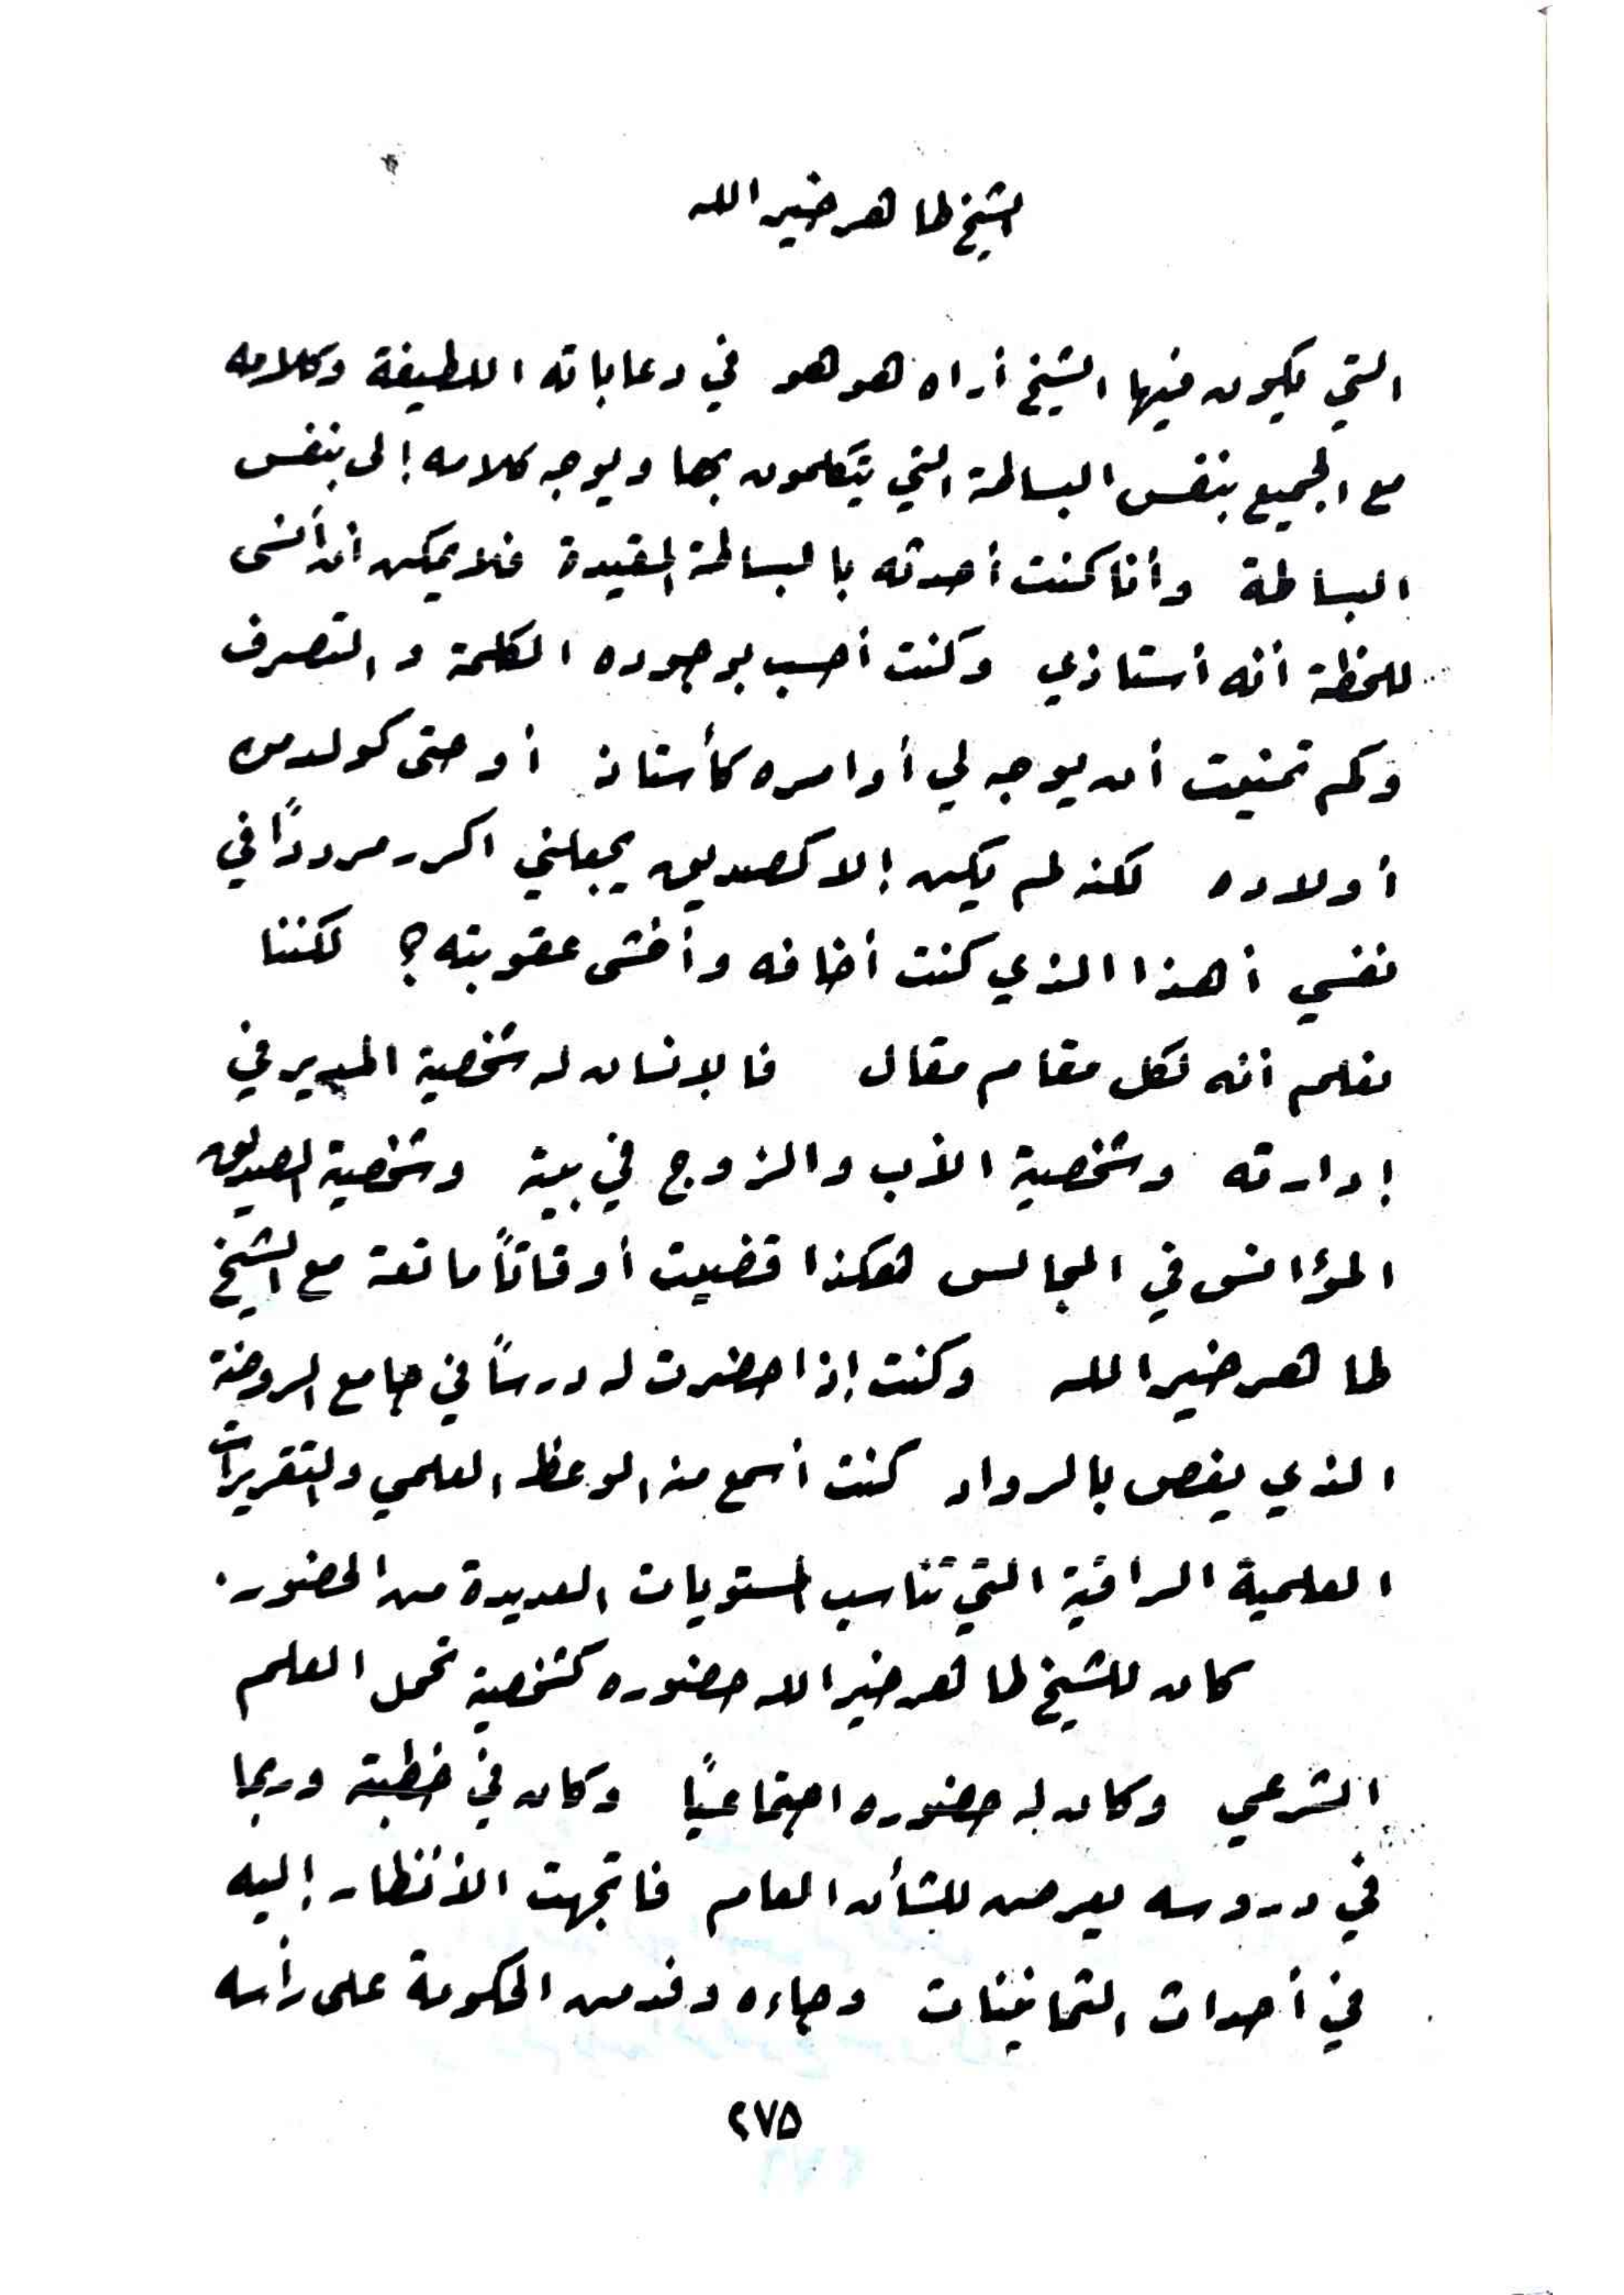 الشيخ طاهر خير الله
التي يكون فيها الشيخ أراه هو هو في دعاباته اللطيفة وكلامه
مع الجميع بنفس البساطة التي يتكلمون بها ويوجه كلامه إلى بنفس
البساطة وأنا كنت أحدثه بالبساطة المقيدة فلا يمكن أن أنسى
للحظة أنه أستاذي وكنت أحسب لوجوده الكلمة والتصرف
وكم تمنيت أن يوجه لي أوامره كأستاذ أو حتى كولد من
أولاده لكنه لم يكن إلا كصديق يجعلني اكرر مردداً في
نفسي أهذا الذي كنت أخافه وأخشى عقوبته؟ لكننا
نعلم أنه لكل مقام مقال فالإنسان له شخصية المدير في
إدارته وشخصية الأب والزوج في بيته وشخصية الصديق
المؤانس في المجالس هكذا قضيت أوقاتاً ماتعة مع الشيخ
طاهر خير الله وكنت إذا حضرت له درساً في جامع الروضة
الذي يغص بالرواد كنت أسمع منه الوعظ العلمي والتقريرات
العلمية الراقية التي تناسب المستويات العديدة من الحضور.
كان للشيخ طاهر خير الله حضوره كشخصية تحمل العلم
الشرعي وكان له حضوره اجتماعياً وكان في خطبته وربما
في دروسه يعرض للشأن العام فاتجهت الأنظار إليه
في أحداث الثمانينات وجاءه وفد من الحكومة على رأسه
٢٧٥